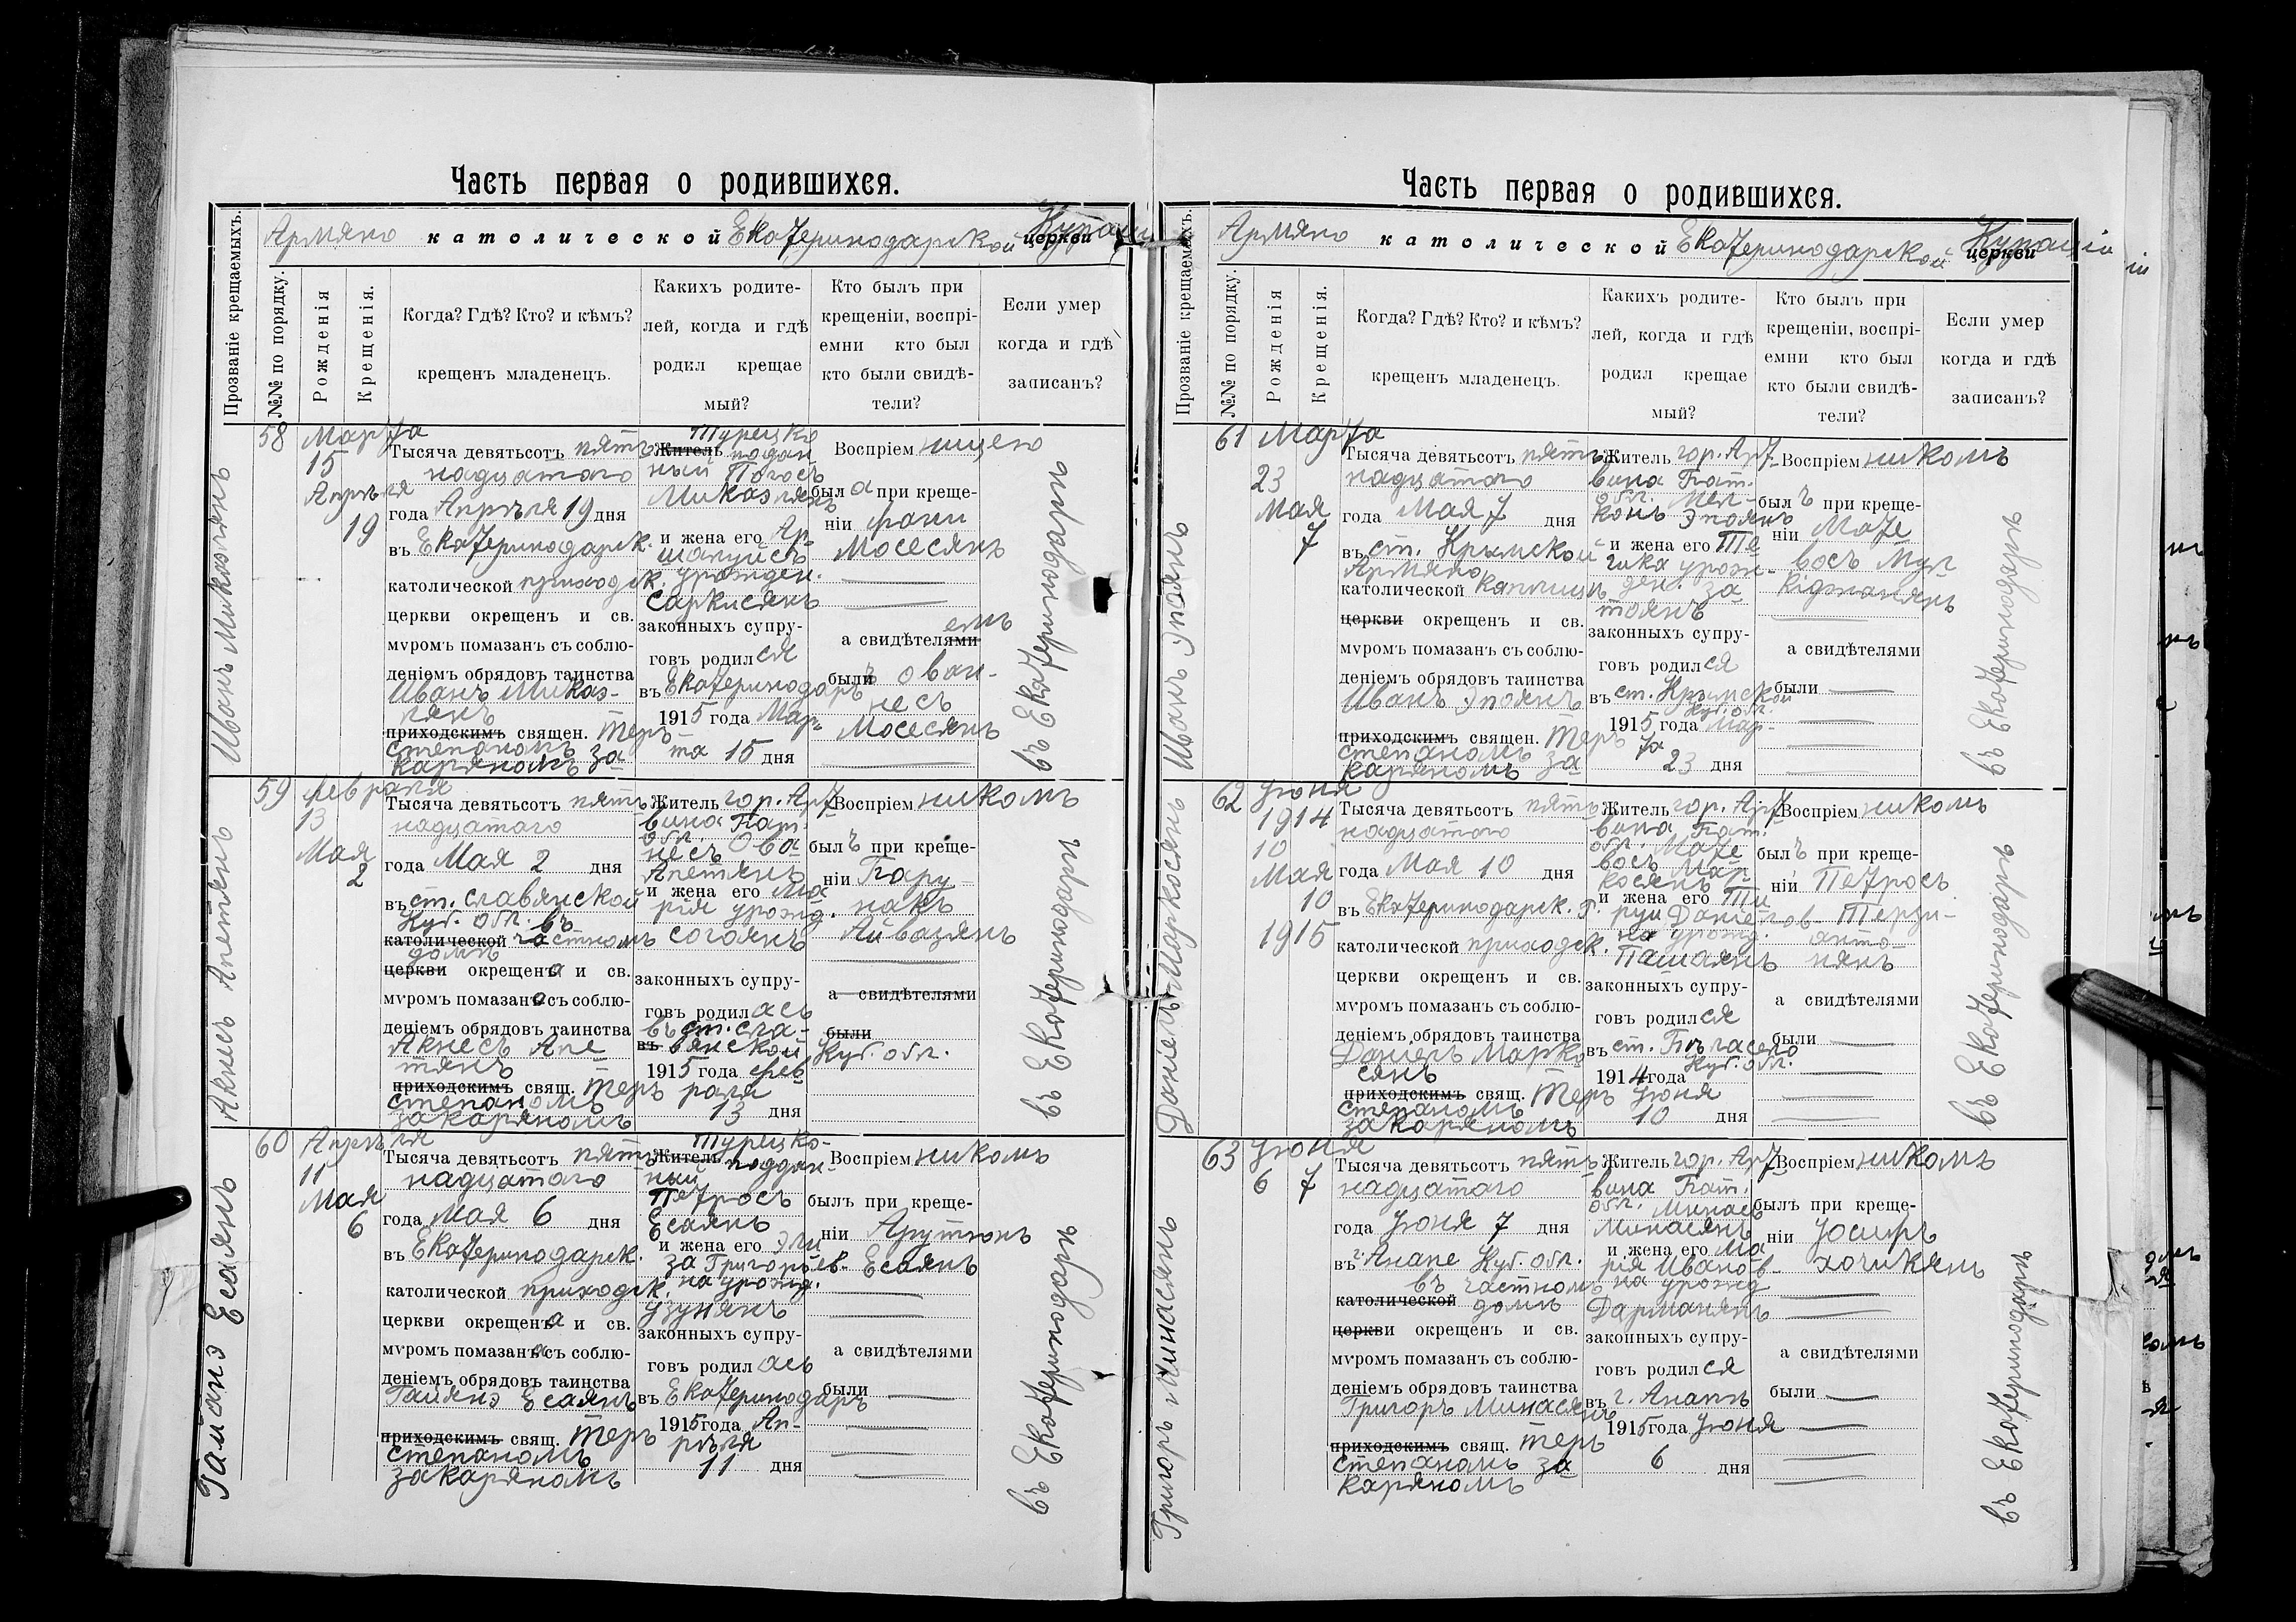 Часть первая о родившихся.
Армяно католической Екатеринодарской церкви
Прозваніе крещаемыхъ.
№№ по порядку.
Рожденія
Крещенія.
Когда? Гдѣ? Кто? и кѣмъ?
крещенъ младенецъ.
Какихъ родите-
лей, когда и гдѣ
родил крещае
мый?
Кто былъ при
крещеніи, воспрі-
емни кто был
кто были свидѣ-
тели?
Если умер
когда и гдѣ
записанъ?
Иванъ Микаэлянъ
58
Марта
15
Апрѣля
19
Тысяча девятьсотъ пятъ
надцатого
года Апрѣля 19 дня
въ Екатеринодарск.
католической приходск.
церкви окрещенъ и св.
мѵромъ помазанъ съ соблю-
деніемъ обрядовъ таинства
Иванъ Микаэ-
лянъ
приходскимъ священ. Теръ
Степаномъ За
каряномъ
Турецко
Житель поддан
ный Погосъ
Микаэлянъ
и жена его Ар-
шалуйсъ
урожден.
Саркисянъ
законныхъ супру-
говъ родился
въ Екатеринодарѣ
1915 года Мар-
та 15 дня
Воспріем ницею
была при креще-
ніи
Мосесянъ
а свидѣтелями
емъ
были Ован-
несъ
Мосесянъ
въ Екатеринодарѣ
Акнесъ Апетянъ
59
Февраля
13
Мая
2
Тысяча девятьсотъ пятъ
надцатого
года Мая 2 дня
въ ст. Славянской
Куб. обл. въ
католической частномъ
домѣ
церкви окрещена и св.
мѵромъ помазана съ соблю-
деніемъ обрядовъ таинства
Акнесъ Апе
тянъ
приходскимъ свящ. Теръ
Степаномъ
Закаряномъ
Житель гор. Арт
вина Бат.
обл. Ова
несъ
Апетянъ
и жена его Ма
рія урожд.
Согоянъ
законныхъ супру-
говъ родилась
въ ст. Сла-
въ вянской
Куб. обл.
1915 года Фев
раля
13 дня
Воспріем никомъ
былъ при креще-
ніи Гару
накъ
Айвазянъ
а свидѣтелями
были
въ Екатеринодарѣ
Гаianэ Есаянъ
60
Апрѣля
11
Мая
6
Тысяча девятьсотъ пятъ
надцатого
года Мая 6 дня
въ Екатеринодарск.
католической приходск.
церкви окрещена и св.
мѵромъ помазана съ соблю-
деніемъ обрядовъ таинства
Гаянэ Есаянъ
приходскимъ свящ. Теръ
Степаномъ
Закаряномъ
Турецко-
Житель поддан-
ный
Петросъ
Есаянъ
и жена его Эли
за Григорьев-
на урожд.
Узунянъ
законныхъ супру-
говъ родилась
въ Екатеринодарѣ
1915 года Ап-
рѣля
11 дня
Воспріем никомъ
былъ при креще-
ніи Арутюнъ
Есаянъ
а свидѣтелями
были
въ Екатеринодарѣ
Часть первая о родившихся.
Армяно католической Екатеринодарской церкви
Прозваніе крещаемыхъ.
№№ по порядку.
Рожденія
Крещенія.
Когда? Гдѣ? Кто? и кѣмъ?
крещенъ младенецъ.
Какихъ родите-
лей, когда и гдѣ
родил крещае
мый?
Кто былъ при
крещеніи, воспрі-
емни кто был
кто были свидѣ-
тели?
Если умер
когда и гдѣ
записанъ?
Иванъ Эпоянъ
61
Марта
23
Мая
7
Тысяча девятьсотъ пятъ
надцатого
года Мая 7 дня
въ ст. Крымской
Армяно
католической
церкви окрещенъ и св.
мѵромъ помазанъ съ соблю-
деніемъ обрядовъ таинства
Иванъ Эпоянъ
приходскимъ священ. Теръ
Степаномъ За
каряномъ
Житель гор. Арт-
вина Бат.
обл. Мел-
конъ Эпоянъ
и жена его
урож-
ден. За
тоянъ
законныхъ супру-
говъ родился
въ ст. Крымской
Куб. обл.
1915 года Мар-
та
23 дня
Воспріем никомъ
былъ при креще-
ніи Мате
восъ
а свидѣтелями
были
въ Екатеринодарѣ
Даніелъ Маркосянъ
62
Іюня
1914
10
Мая
10
1915
Тысяча девятьсотъ пятъ
надцатого
года Мая 10 дня
въ Екатеринодарск.
католической приходск.
церкви окрещенъ и св.
мѵромъ помазанъ съ соблю-
деніемъ обрядовъ таинства
Даніелъ Марко
сянъ
приходскимъ свящ. Теръ
Степаномъ
Закаряномъ
Житель гор. Арт
вина Бат.
обл. Мате
восъ Мар-
косянъ
и жена его
на урожд.
Пашаянъ
законныхъ супру-
говъ родился
въ ст.
Куб. обл.
1914 года
Іюня
10 дня
Воспріем никомъ
былъ при креще-
ніи Петросъ
Терзи-
анто-
нянъ
а свидѣтелями
были
въ Екатеринодарѣ
Григоръ Минасянъ
63
Іюня
6
7
Тысяча девятьсотъ пятъ
надцатого
года Іюня 7 дня
въ г. Анапе Куб. обл.
въ частномъ
католической домѣ
церкви окрещенъ и св.
мѵромъ помазанъ съ соблю-
деніемъ обрядовъ таинства
Григоръ Минасянъ
приходскимъ свящ. Теръ
Степаномъ За
каряномъ
Житель гор. Арт
вина Бат.
обл. Минас
Минасянъ
и жена его Ма
рія Иванов-
на урожд
Дарманянъ
законныхъ супру-
говъ родился
въ г. Анапѣ
1915 года Іюня
6 дня
Воспріем никомъ
былъ при креще-
ніи
Хочикянъ
а свидѣтелями
были
въ Екатеринодарѣ